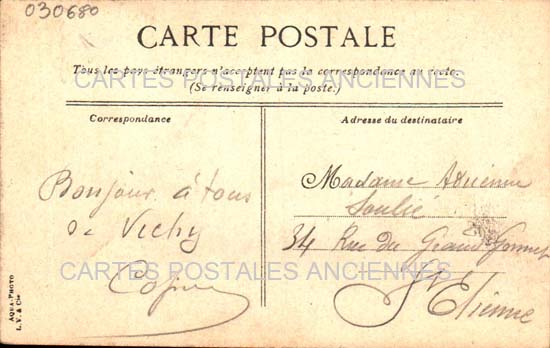 030680
CARTE POSTALE
Tous les pays étrangers n'acceptent pas la correspondance au recto.
(Se renseigner à la poste.)
CARTES POSTALES ANCIENNES
Correspondance
Bonjour à tous
de Vichy
Adresse du destinataire
Madame Adrienne
Soulié
34 Rue du Grand Gonnet
St Etienne
CARTES POSTALES ANCIENNES
AQUA-PHOTO
L. V. & Cie